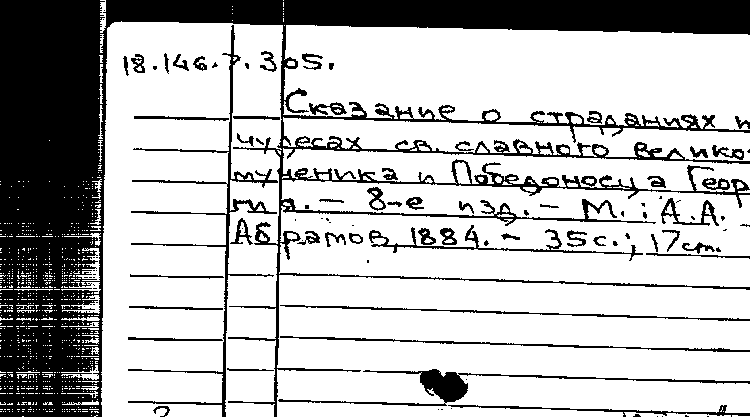 18.146.7.305.
Сказание о страданиях и
чудесах св. славного велико-
мученика и Победоносца Геор-
гия. — 8-е изд. — М.: А.А.
Абрамов, 1884. — 35с.; 17см.